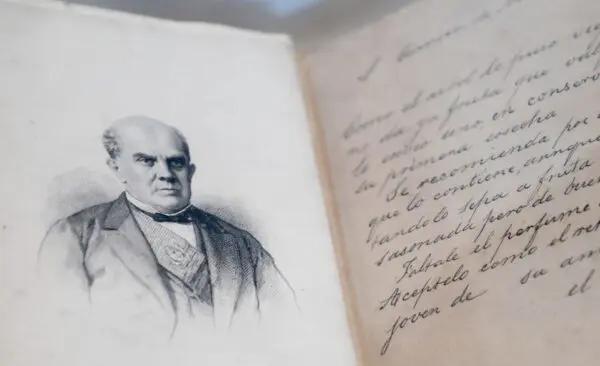 Como el arbol de puro vie
no da ya fruta que val
le envio uno, en conserv
su primera cosecha
Se recomienda por
que lo contiene, aunque
tandolo sepa a fruta
sasonada pero de bue
Faltale el perfume
Aceptelo como el ret
joven de su am
el